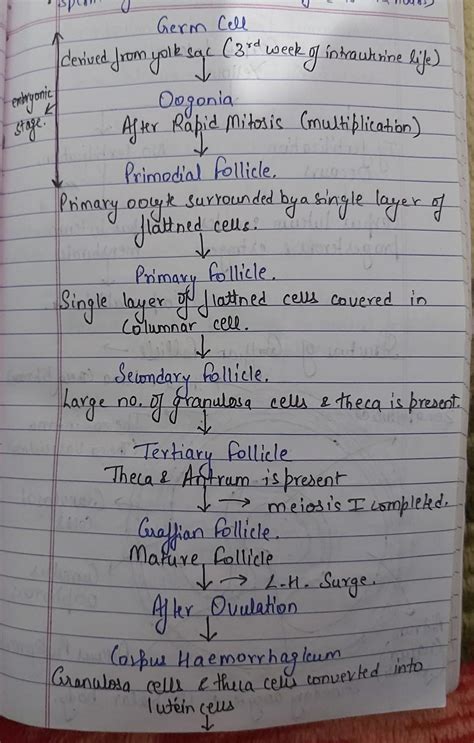 Germ Cell
derived from yolk sac (3rd week of intrauterine life)
embryonic
stage.
Oogonia
After Rapid Mitosis (multiplication)
Primodial follicle.
Primary oocyte surrounded by a single layer of
flattned cells.
Primary follicle.
Single layer of flattned cells covered in
Columnar cell.
Secondary follicle.
Large no. of granulosa cells & theca is present.
Tertiary follicle
Theca & Antrum is present
→ meiosis I completed.
Graffian follicle.
Mature follicle
→ L.H. Surge.
After Ovulation
Corpus Haemorrhagicum
Granulosa cells & theca cells converted into
lutein cells